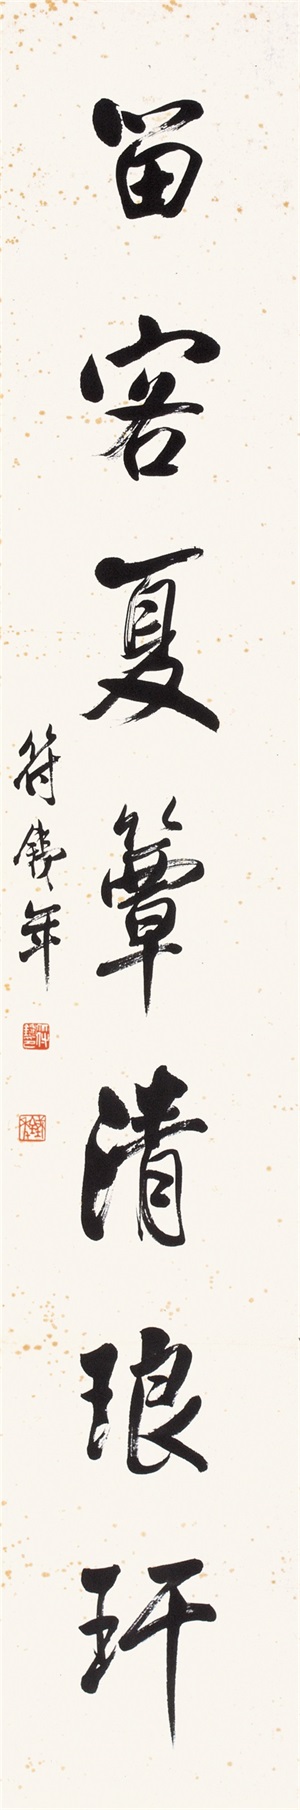 留客夏簟清琅玕
符鐵年